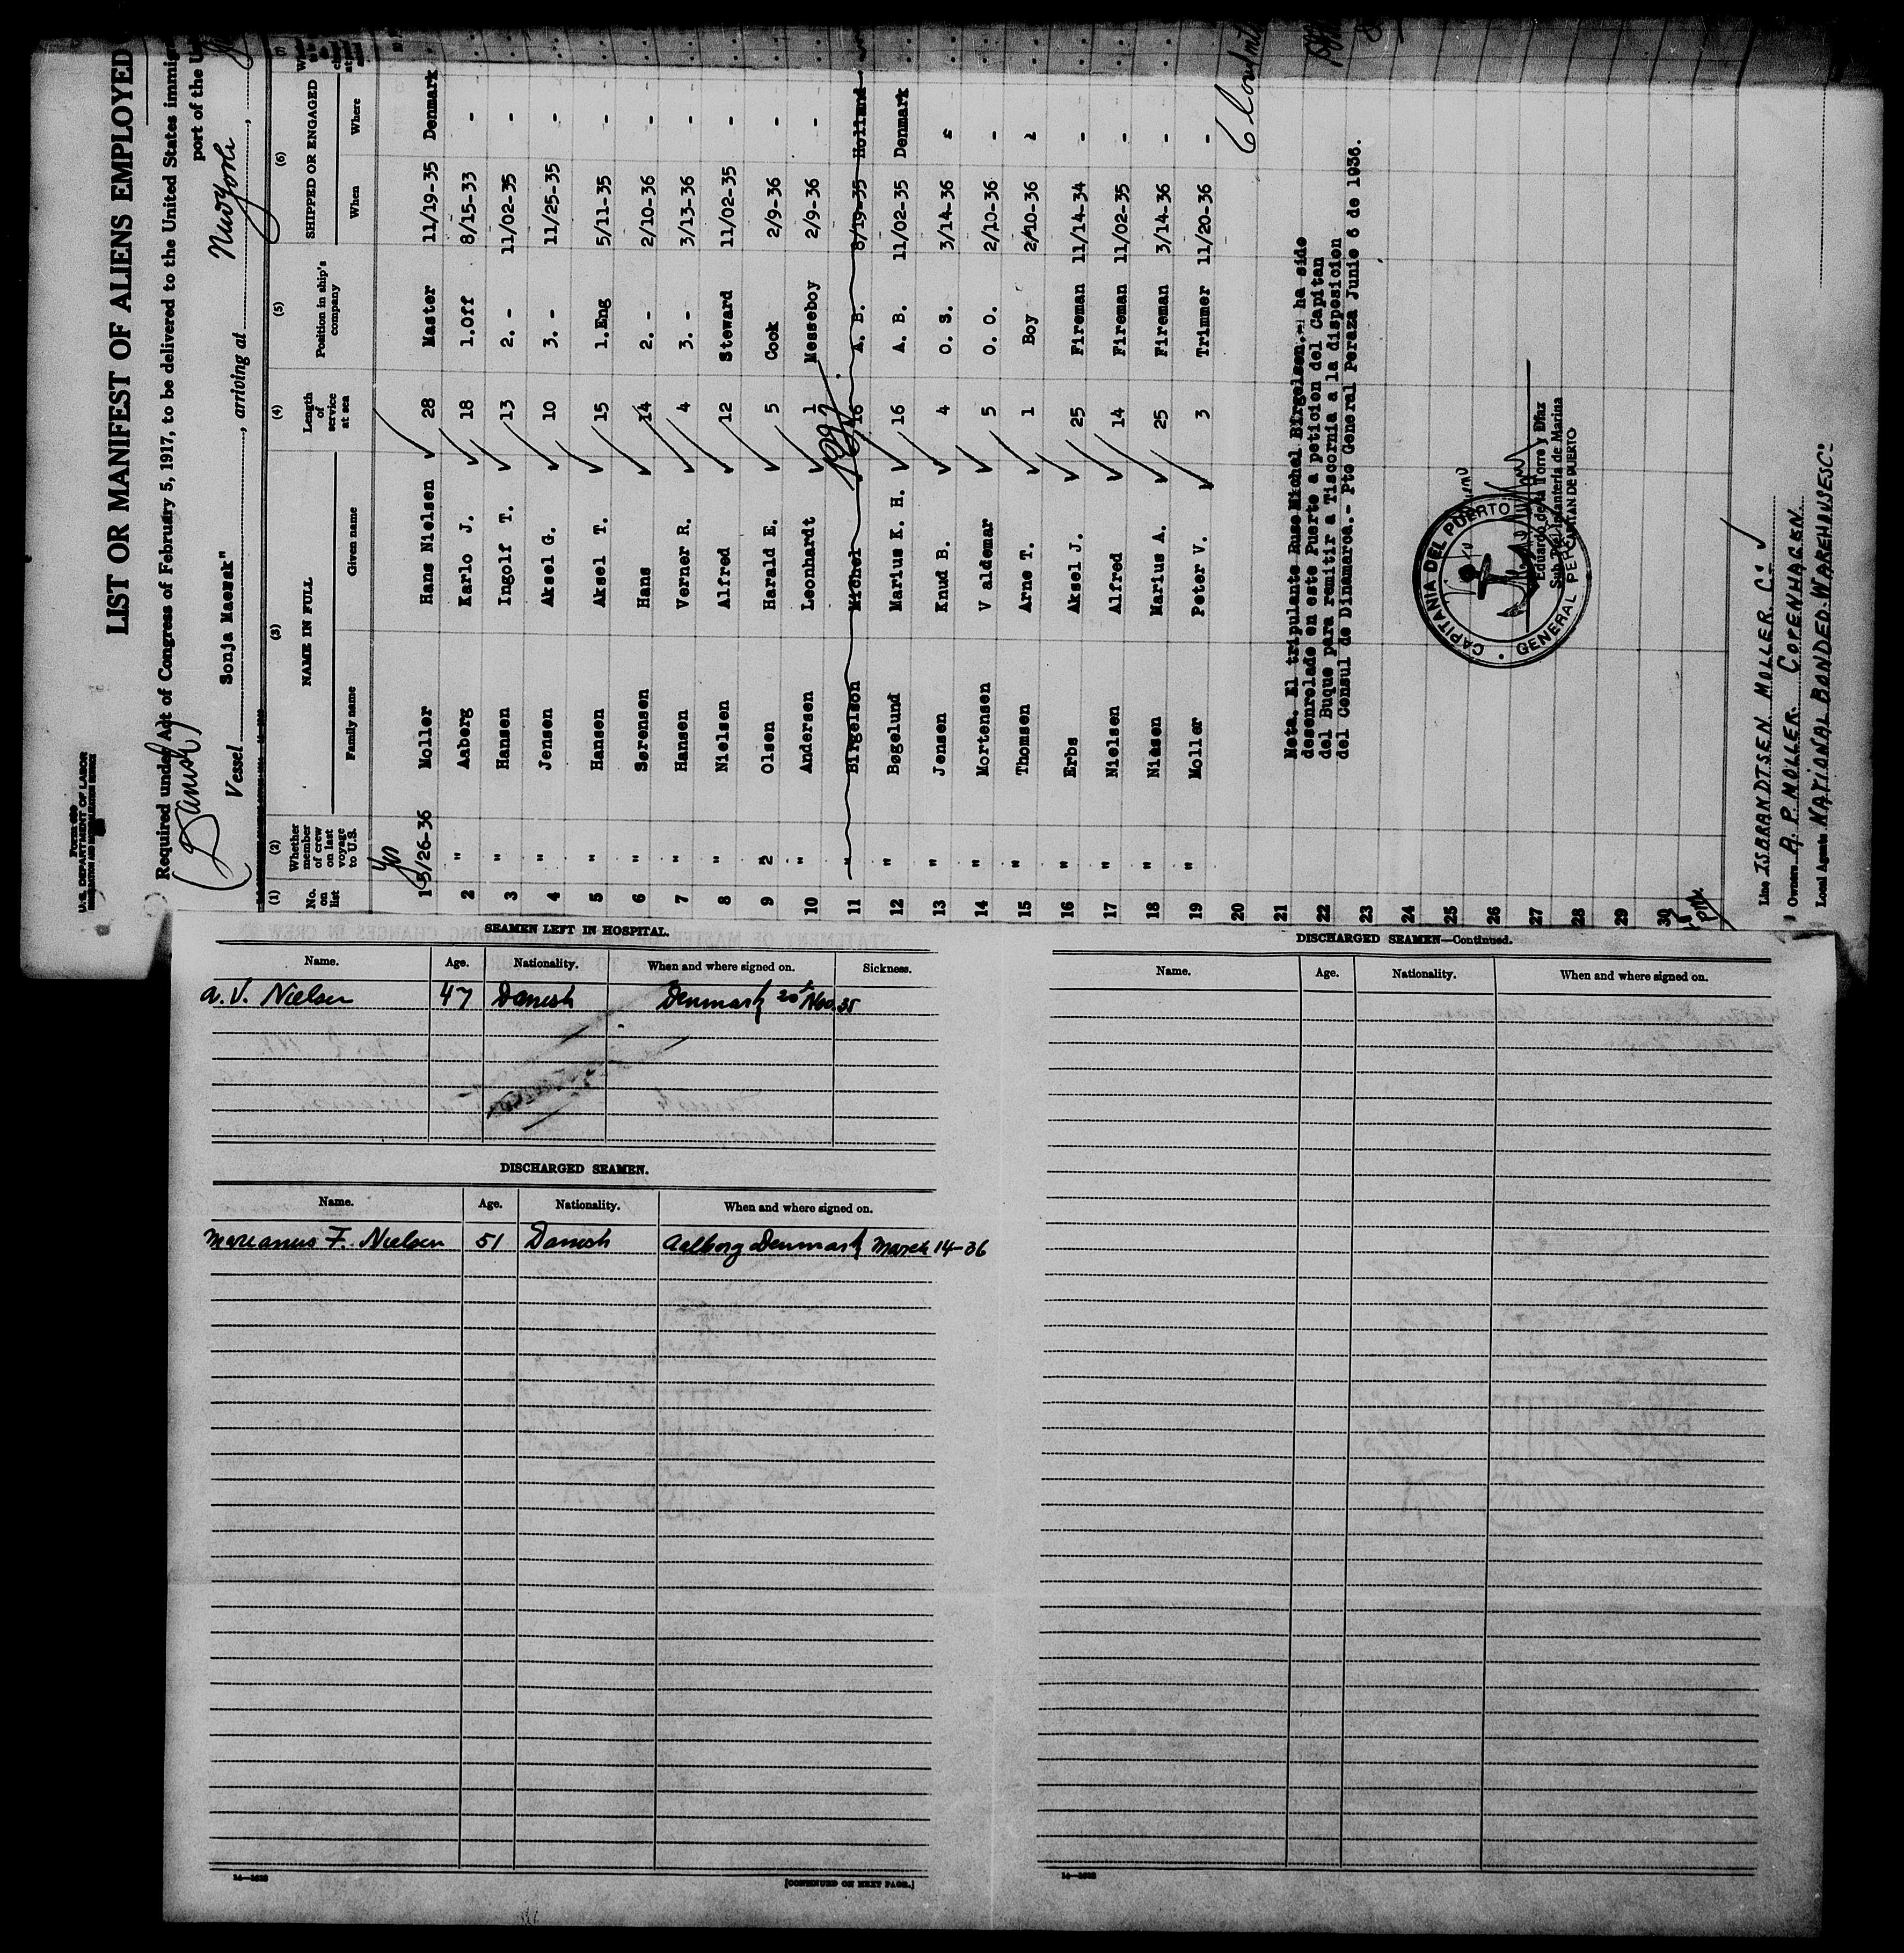 Form 689
U.S. DEPARTMENT OF LABOR
IMMIGRATION AND NATURALIZATION SERVICE
LIST OR MANIFEST OF ALIENS EMPLOYED
Required under Act of Congress of February 5, 1917, to be delivered to the United States immigr
port of the U
(Danish)
Vessel Sonja Maersk", arriving at New York,
(1) (2) (3) (4) (5) (6)
No. on list Whether member of crew on last voyage to U.S. NAME IN FULL Length of service at sea Position in ship's company SHIPPED OR ENGAGED
Family name Given name When Where
Yes
1 5/26-36 Moller Hans Nielsen 28 Master 11/19-35 Denmark
2 " Aaberg Karlo J. 18 1.Off 8/15-33 -
3 " Hansen Ingolf T. 13 2. - 11/02-35 -
4 " Jensen Aksel G. 10 3. - 11/25-35 -
5 " Hansen Aksel T. 15 1.Eng 5/11-35 -
6 " Sørensen Hans 14 2. - 2/10-36 -
7 " Hansen Verner R. 4 3. - 3/13-36 -
8 " Nielsen Alfred 12 Steward 11/02-35 -
9 " Olsen Harald E. 5 Cook 2/9-36 -
10 " Andersen Leonhardt 1 Messeboy 2/9-36 -
11 " Birgelson Michel 16 A. B. 8/19-35 Holland
12 " Bøgelund Marius K. H. 16 A. B. 11/02-35 Denmark
13 " Jensen Knud B. 4 O. S. 3/14-36 -
14 " Mortensen V aldemar 5 O. O. 2/10-36 -
15 " Thomsen Arne T. 1 Boy 2/10-36 -
16 " Erbs Aksel J. 25 Fireman 11/14-34 -
17 " Nielsen Alfred 14 Fireman 11/02-35 -
18 " Niesen Marius A. 25 Fireman 3/14-36 -
19 " Moller Peter V. 3 Trimmer 11/20-36 -
20
21
22
23
24
25
26
27
28
29
30
Nota. El tripulante Ruso Michel Birgelsen.- ha side
desenrelade en este Puerte a peticion del Capitan
del Buque para remitir a Tiscornia a la disposicion
del Consul de Dinamarca.- Pto General Peraza Junie 6 de 1936.
CAPITANIA DEL PUERTO
GENERAL PERAZA
Eduardo de la Torre y Diaz
Sub.Del.Infanteria de Marina
CAPITAN DE PUERTO
Line ISBRANDTSEN MOLLER Co
Owners A. P. MOLLER. COPENHAGEN.
Local Agents NATIONAL BONDED WAREHOUSES Co
SEAMEN LEFT IN HOSPITAL.
Name. Age. Nationality. When and where signed on. Sickness.
A. V. Nielsen 47 Danish Denmark 20th Nov. 35
DISCHARGED SEAMEN.
Name. Age. Nationality. When and where signed on.
Marianus F. Nielsen 51 Danish Aalborg Denmark March 14-36
14—1618
[CONTINUED ON NEXT PAGE.]
DISCHARGED SEAMEN—Continued.
Name. Age. Nationality. When and where signed on.
14—1618